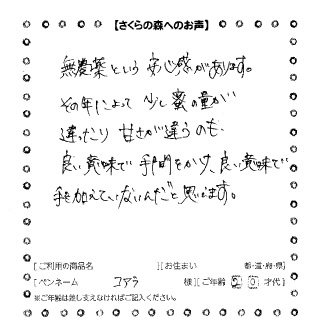 【さくらの森へのお声】
無農薬という安心感があります。
その年によって少し蜜の量が
違ったり甘さが違うのも、
良い意味で手間をかけ、良い意味で
手を加えていないんだと思います。
[ご利用の商品名 ][お住まい 都・道・府・県]
[ペンネーム コアラ 様][ご年齢 50 才代]
※ご年齢は差し支えなければご記入ください。